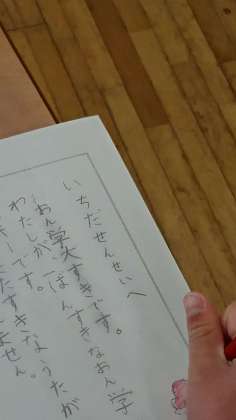 いちだせんせいへ
おん学大すきです。
わたしが一ばんすきなおん学
です。
すきなうたが
ません。